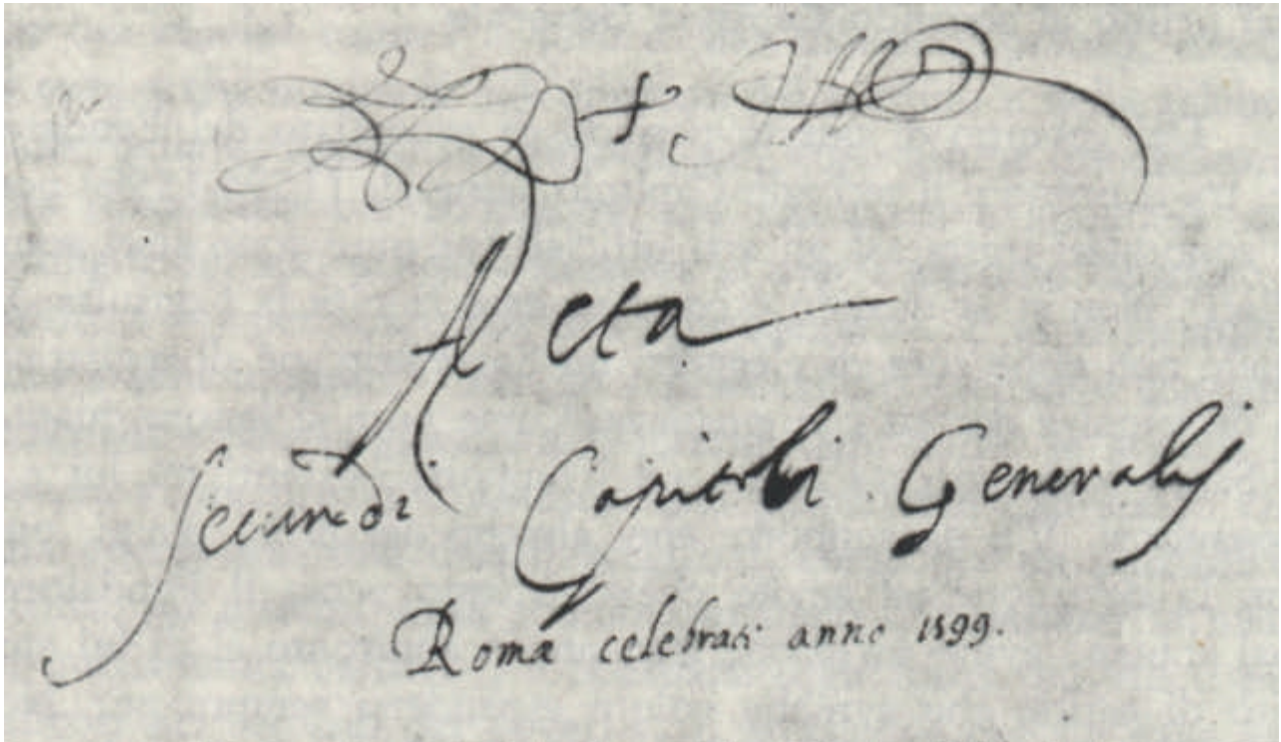 Acta
Secundi Capituli Generalis
Romæ celebrati anno 1599.